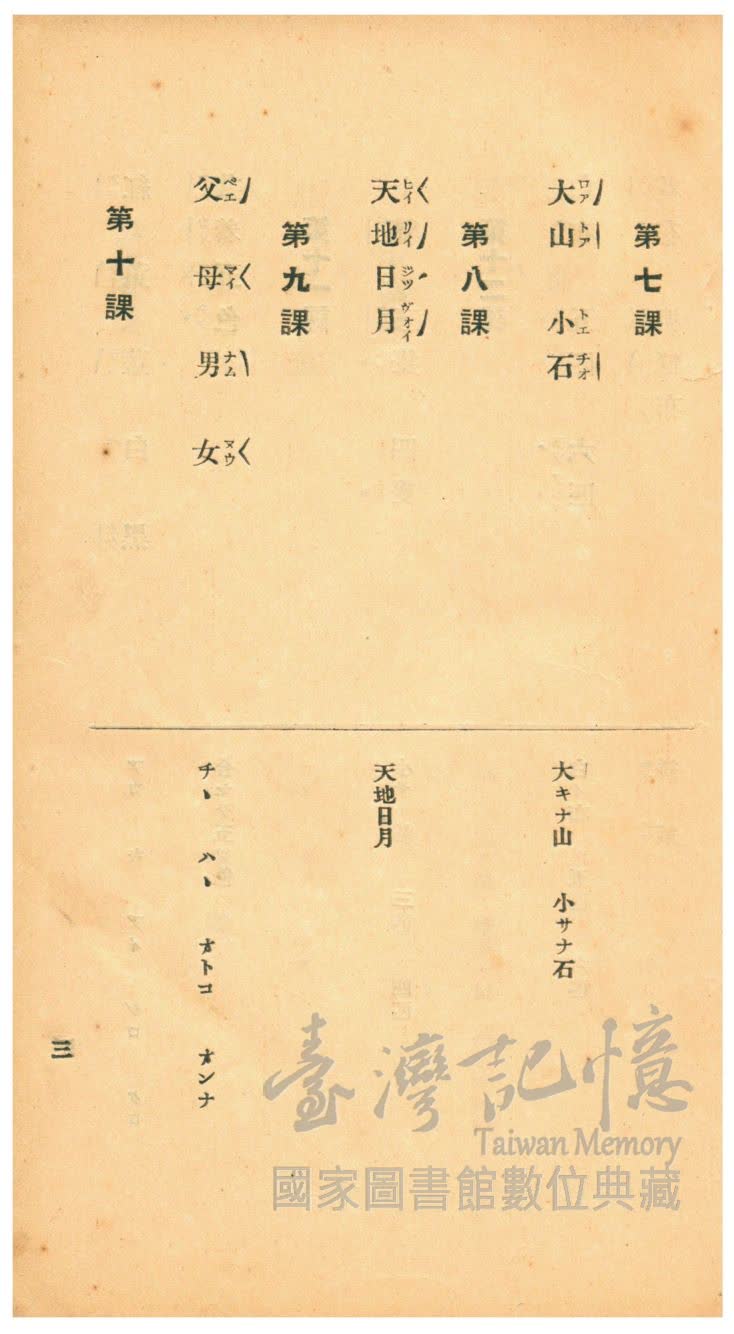 第七課
大ロア山トア　小トエ石チオ
大キナ山　小サナ石
第八課
天ヒイ地リイ日ジツ月ヴォイ
天地日月
第九課
父ペエ　母マイ　男ナム　女ヌウ
チヽ　ハヽ　オトコ　オンナ
第十課
三
臺灣記憶
Taiwan Memory
國家圖書館數位典藏